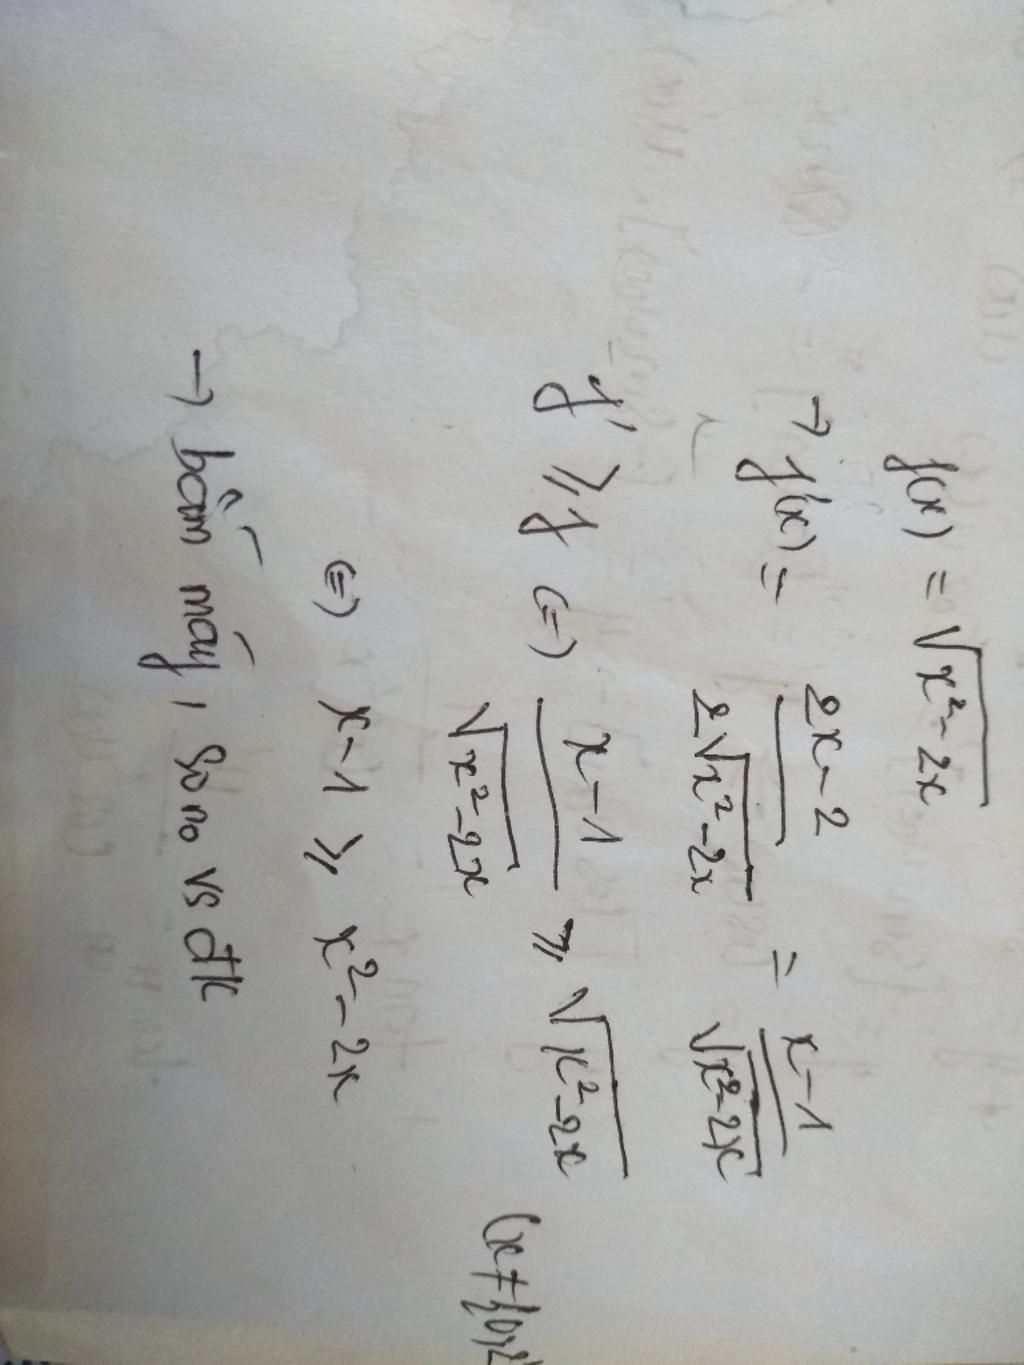 f(x) = √(x² - 2x)
→ f'(x) = (2x - 2)/(2√(x² - 2x)) = (x - 1)/√(x² - 2x)
f' ≥ f (=) (x - 1)/√(x² - 2x) ≥ √(x² - 2x) (x ≠ {0;2
(=) x - 1 ≥ x² - 2x
→ bấm máy, so no vs đk